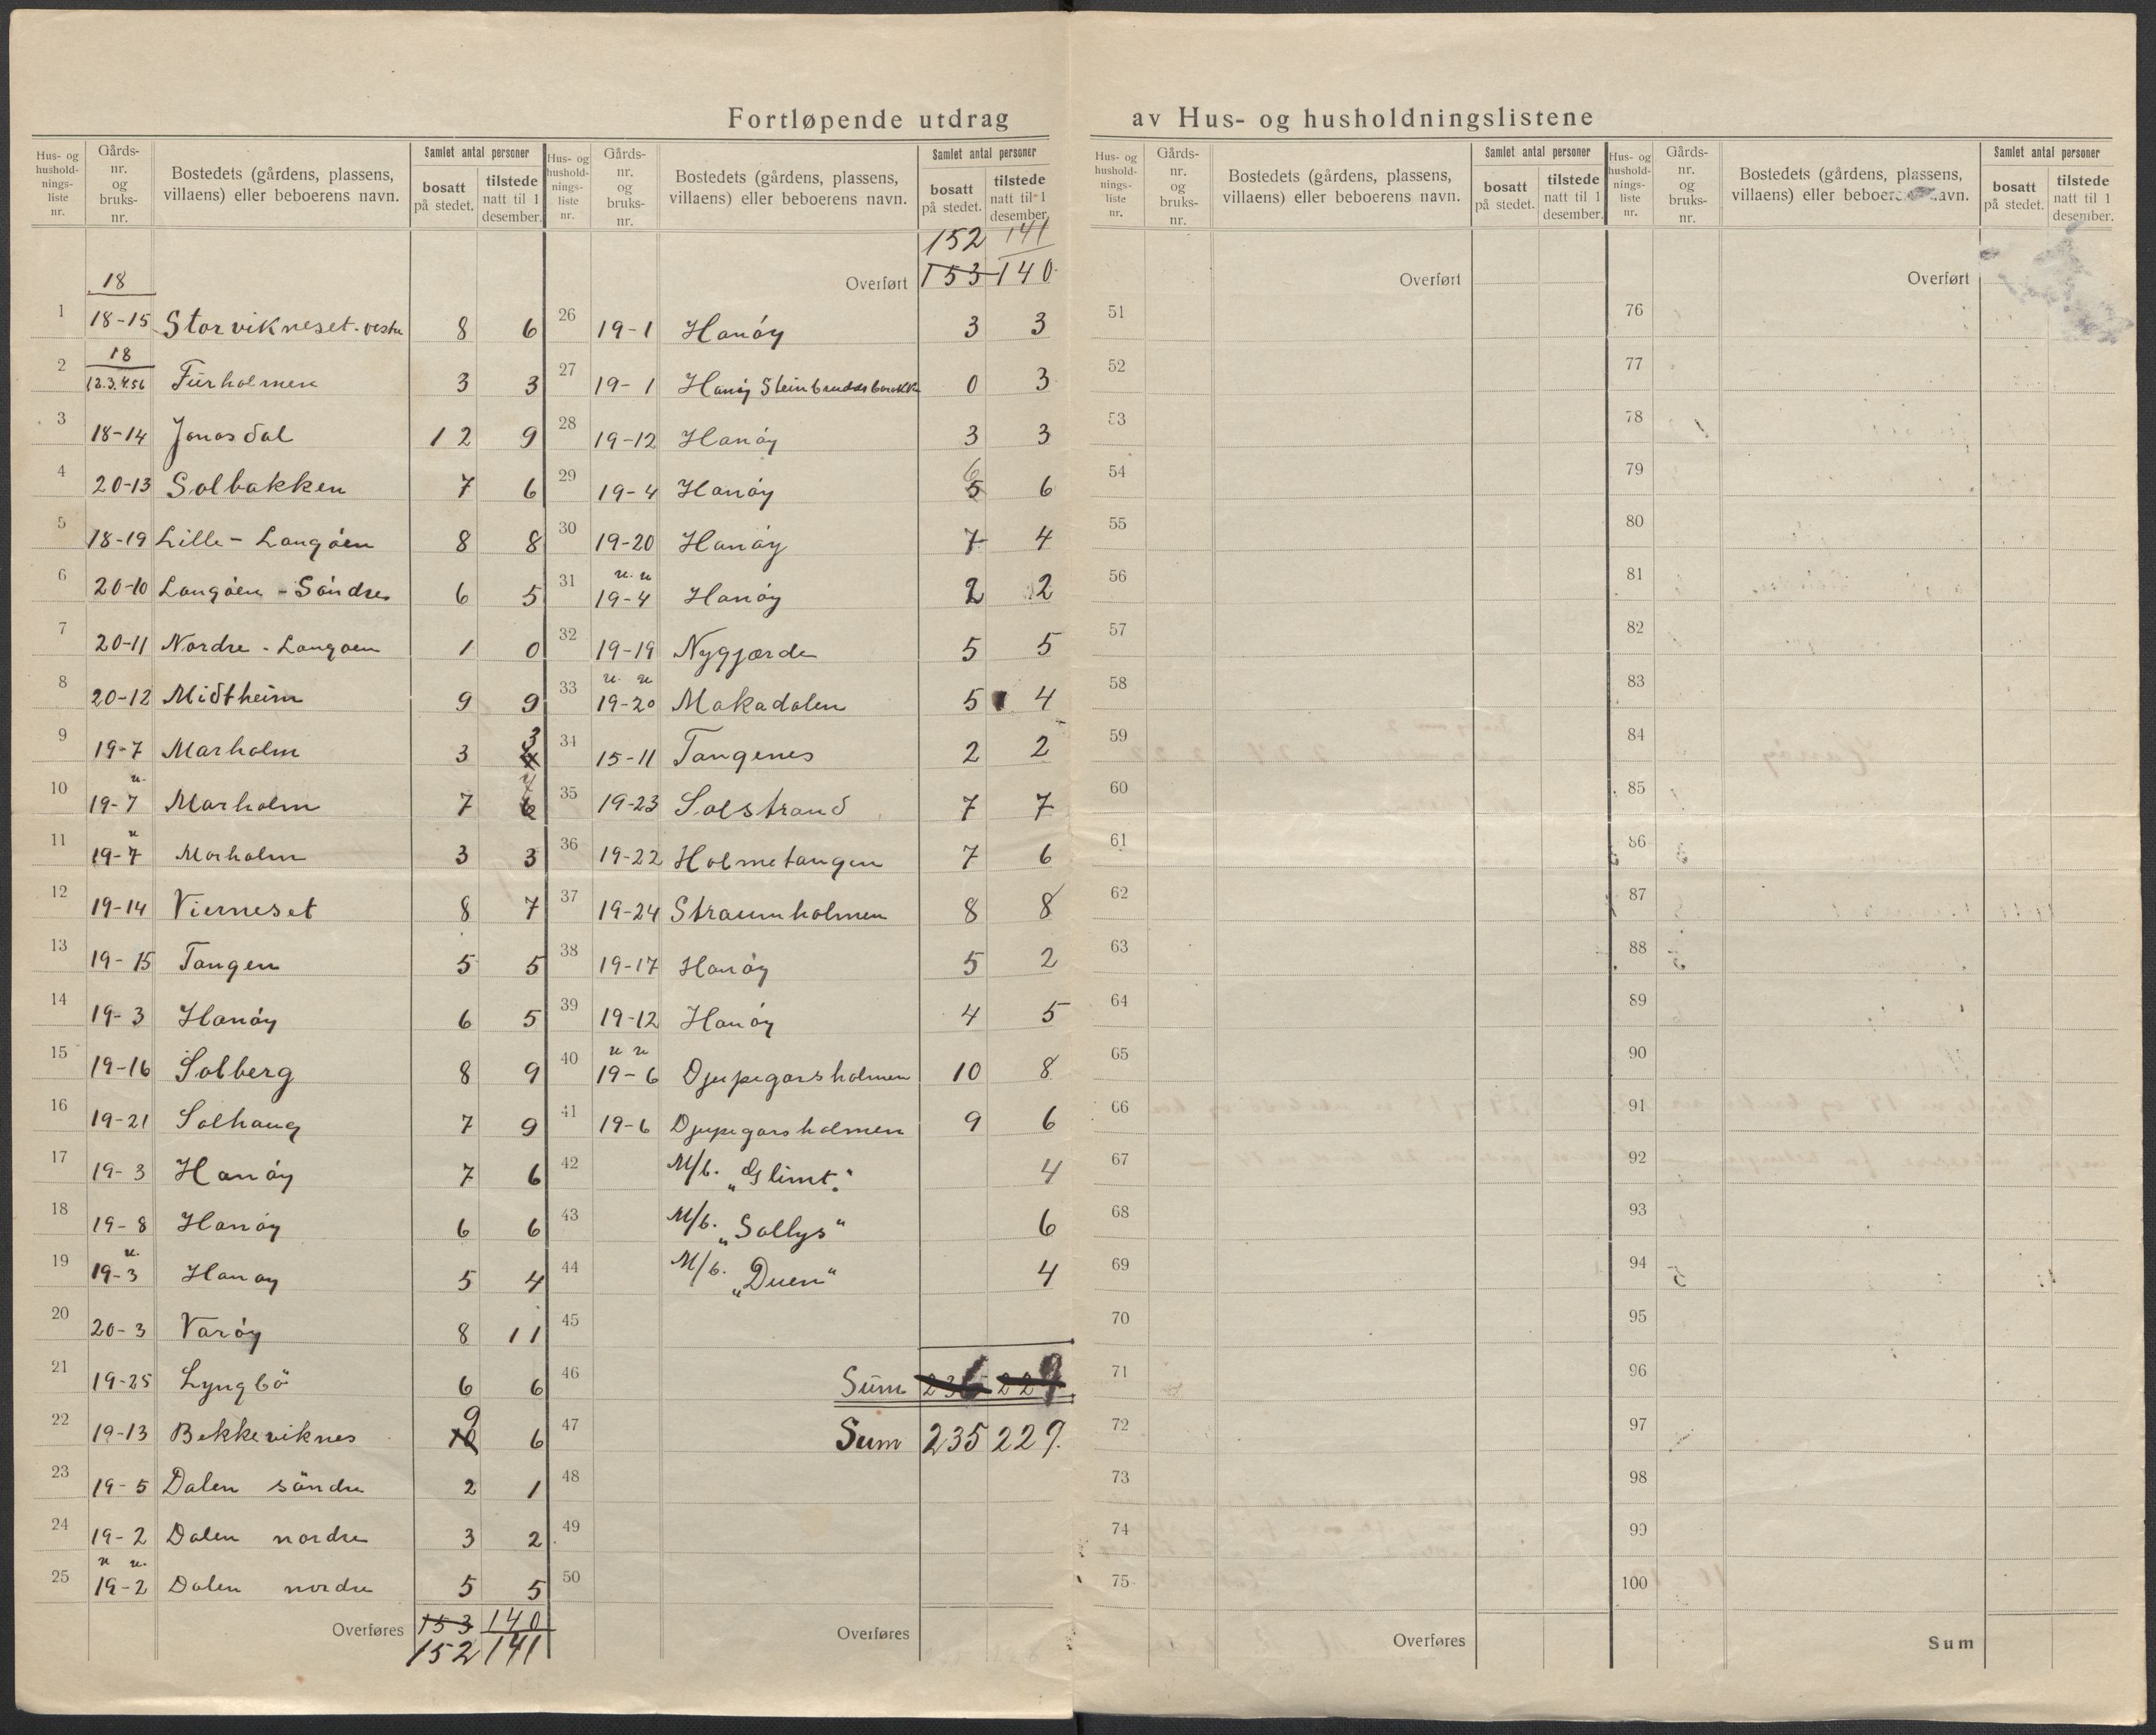 Fortløpende utdrag av Hus- og husholdningslistene
Hus- og hushold-nings-liste nr. | Gårds-nr. og bruks-nr. | Bostedets (gårdens, plassens, villaens) eller beboerens navn. | Samlet antal personer | bosatt på stedet. | tilstede natt til 1 desember.
18
1 18-15 Storvikneset. vestre 8 6
18
2 12.3.4.56 Furholmen 3 3
3 18-14 Jonasdal 12 9
4 20-13 Solbakken 7 6
5 18-19 Lille-Langöen 8 8
6 20-10 Langöen - Söndre 6 5
7 20-11 Nordre - Langoen 1 0
8 20-12 Midtheim 9 9
9 19-7 Marholm 3 3
u.
10 19-7 Marholm 7
u
11 19-7 Marholm 3 3
12 19-14 Vierneset 8 7
13 19-15 Tangen 5 5
14 19-3 Hanöy 6 5
15 19-16 Solberg 8 9
16 19-21 Solhaug 7 9
17 19-3 Hanöy 7 6
18 19-8 Hanöy 6 6
u.
19 19-3 Hanoy 5 4
20 20-3 Varöy 8 11
21 19-25 Lyngbö 6 6
9
22 19-13 Bekkeviknes 10 6
23 19-5 Dalen söndre 2 1
24 19-2 Dalen nordre 3 2
u u.
25 19-2 Dalen nordre 5 5
Overføres 153 140
152 141
Hus- og hushold-nings-liste nr. | Gårds-nr. og bruks-nr. | Bostedets (gårdens, plassens, villaens) eller beboerens navn. | Samlet antal personer | bosatt på stedet. | tilstede natt til 1 desember.
152 141
Overført 153 140
26 19-1 Hanöy 3 3
27 19-1 Hanöy Steinbruddsbarakke 0 3
28 19-12 Hanöy 3 3
6
29 19-4 Hanöy 5 6
30 19-20 Hanöy 7 4
u. u
31 19-4 Hanöy 2 2
32 19-19 Nygjærde 5 5
u. u
33 19-20 Makadalen 5 4
34 15-11 Tangenes 2 2
35 19-23 Solstrand 7 7
36 19-22 Holmetangen 7 6
37 19-24 Straumholmen 8 8
38 19-17 Hanöy 5 2
39 19-12 Hanöy 4 5
u u
40 19-6 Djupegarsholmen 10 8
41 19-6 Djupegarsholmen 9 6
42 M/b. „Glimt." 4
43 M/b. „Sollys" 6
44 M/b. „Duen" 4
45
46 Sum 236 229
47 Sum 235 229.
48
49
50
Overføres
Hus- og hushold-nings-liste nr. | Gårds-nr. og bruks-nr. | Bostedets (gårdens, plassens, villaens) eller beboerens navn. | Samlet antal personer | bosatt på stedet. | tilstede natt til 1 desember.
Overført
51
52
53
54
55
56
57
58
59
60
61
62
63
64
65
66
67
68
69
70
71
72
73
74
75
Overføres
Hus- og hushold-nings-liste nr. | Gårds-nr. og bruks-nr. | Bostedets (gårdens, plassens, villaens) eller beboerens navn. | Samlet antal personer | bosatt på stedet. | tilstede natt til 1 desember.
Overført
76
77
78
79
80
81
82
83
84
85
86
87
88
89
90
91
92
93
94
95
96
97
98
99
100
Sum